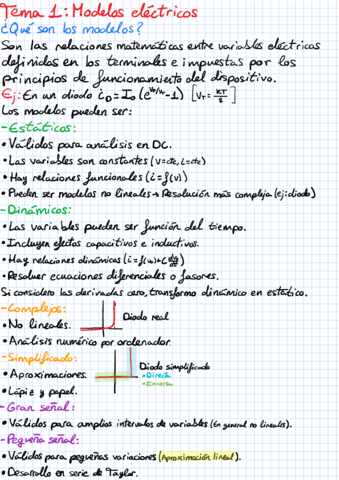 Tema 1: Modelos eléctricos
¿Qué son los modelos?
Son las relaciones matemáticas entre variables eléctricas
definidas en los terminales e impuestas por los
principios de funcionamiento del dispositivo.
Ej: En un diodo i_D = I_0 (e^(V_D/V_T) - 1) [V_T = KT/q]
Los modelos pueden ser:
- Estáticos:
• Válidos para análisis en DC.
• Las variables son constantes (v=cte, i=cte)
• Hay relaciones funcionales (i=f(v))
• Pueden ser modelos no lineales → Resolución más compleja (ej: diodo)
- Dinámicos:
• Las variables pueden ser función del tiempo.
• Incluyen efectos capacitivos e inductivos.
• Hay relaciones dinámicas (i=f(v)+C dv/dt)
• Resolver ecuaciones diferenciales o fasores.
Si considero las derivadas cero, transformo dinámico en estático.
- Complejos:
• No lineales. Diodo real
• Análisis numérico por ordenador.
- Simplificado:
Diodo simplificado
• Aproximaciones. • Directa
• Inversa
• Lápiz y papel.
- Gran señal:
• Válidos para amplios intervalos de variables (En general no lineales).
- Pequeña señal:
• Válidos para pequeñas variaciones (Aproximación lineal).
• Desarrollo en serie de Taylor.